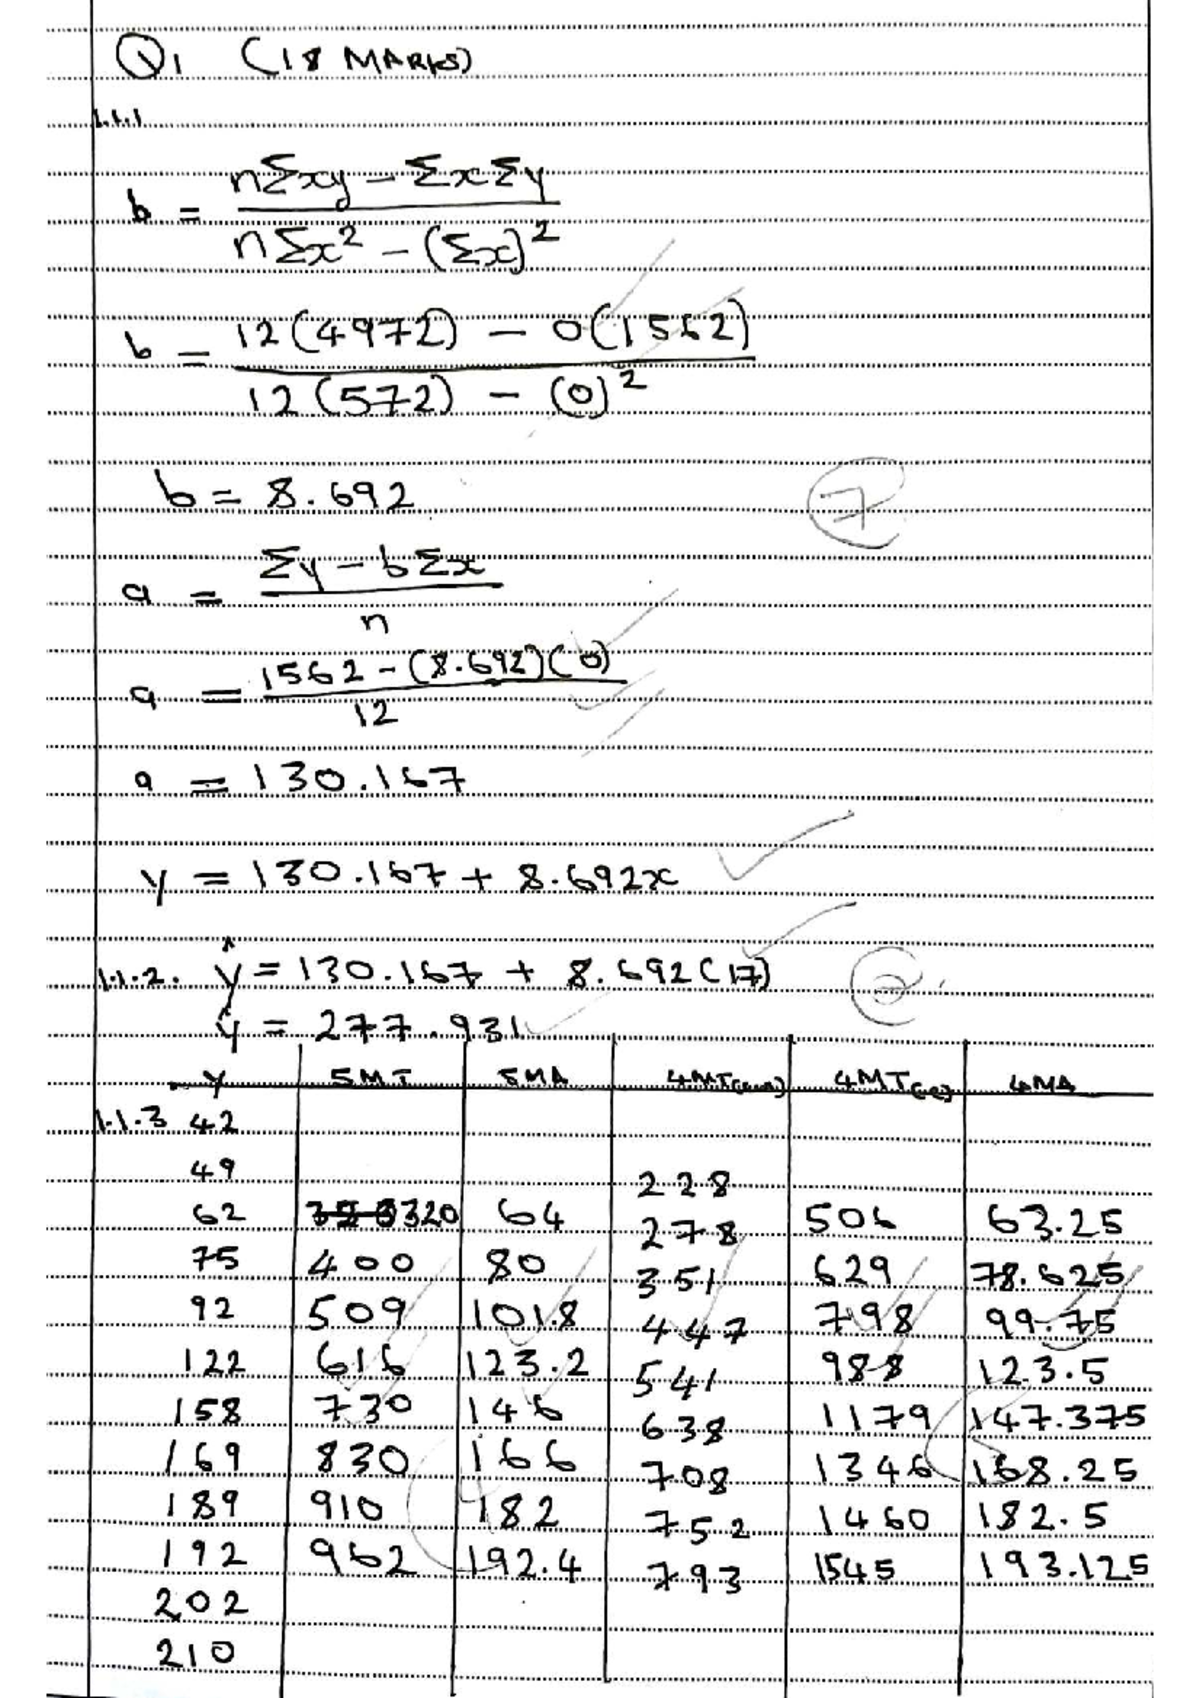 Q1 (18 MARKS)
1.1.1
b = nΣxy - ΣxΣy / nΣx² - (Σx)²
b = 12(4972) - 0(1562) / 12(572) - (0)²
b = 8.692
7
a = Σy - bΣx / n
a = 1562 - (8.692)(0) / 12
a = 130.167
y = 130.167 + 8.692x
1.1.2. ŷ = 130.167 + 8.692(17)
2
ŷ = 277.931
y 5MT 5MA 4MT 4MT 4MA
1.1.3 42
49
228
62 320 64 506 63.25
278
75 400 80 629 78.625
351
92 509 101.8 798 99.75
447
122 616 123.2 988 123.5
541
158 730 146 1179 147.375
638
169 830 166 1346 168.25
708
189 910 182 1460 182.5
752
192 962 192.4 1545 193.125
793
202
210